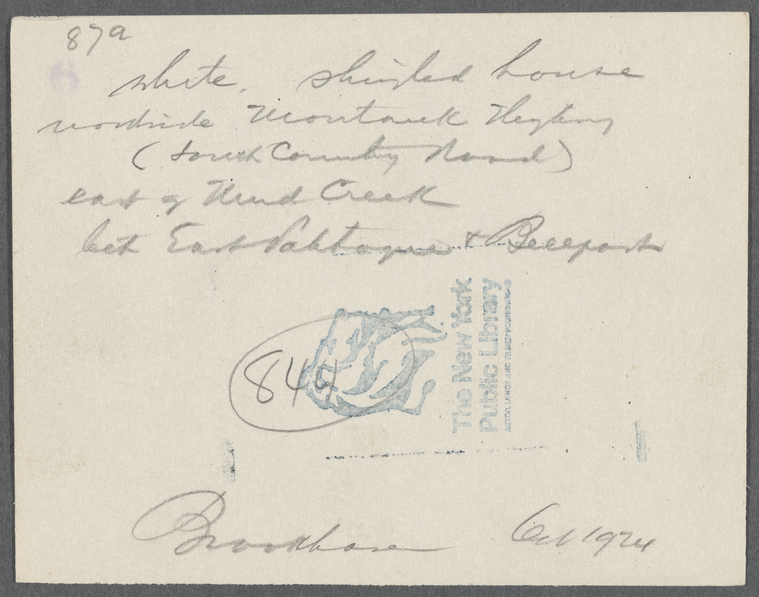 87a
white, shingled house
northside Montauk Highway
(South Country Road)
east of Mud Creek
bet East Patchogue & Bellport
844
The New York
Public Library
ASTOR, LENOX AND TILDEN FOUNDATIONS
Brookhaven Oct 1924